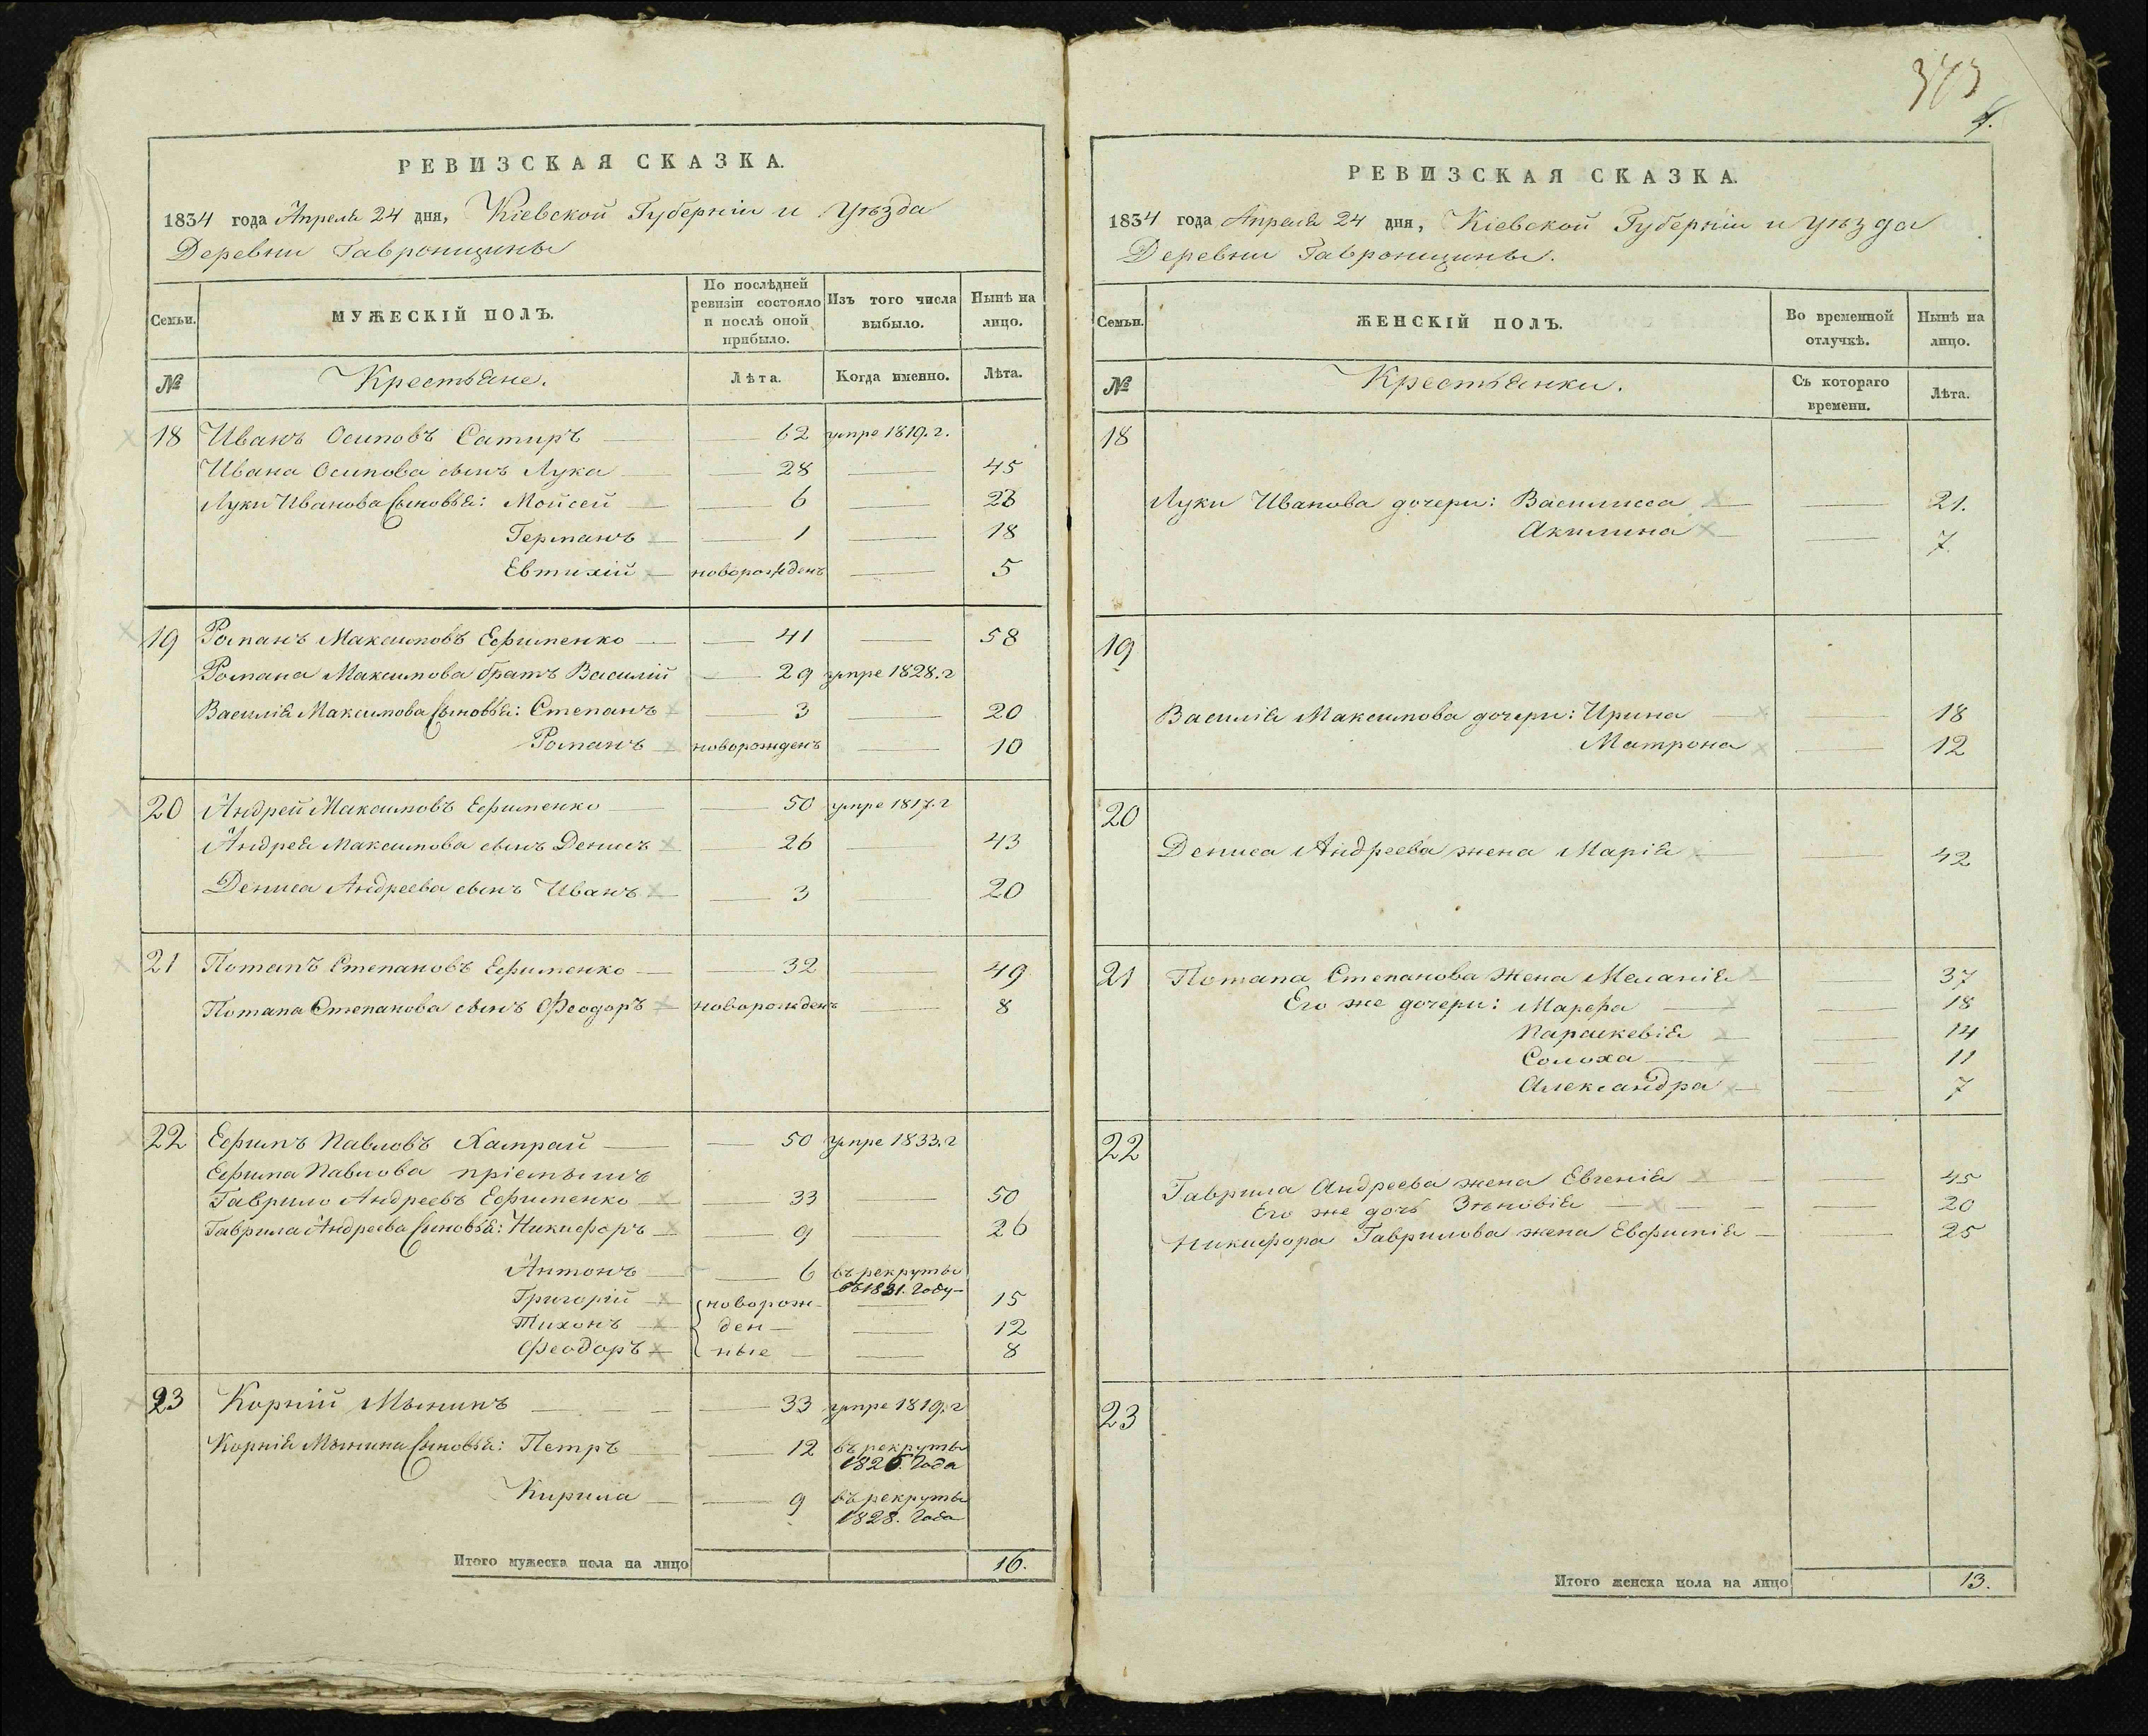 РЕВИЗСКАЯ СКАЗКА.
1834 года Апреля 24 дня, Кіевской Губерніи и Уѣзда
Деревни Гавронщины
Семьи.
МУЖЕСКІЙ ПОЛЪ.
По послѣдней ревизіи состояло и послѣ оной прибыло.
Изъ того числа выбыло.
Нынѣ на лицо.
№
Крестьяне.
Лѣта.
Когда именно.
Лѣта.
18 Иванъ Осиповъ Сатиръ 62 умре 1819. г.
Ивана Осипова сынъ Лука 28 45
Луки Иванова Сыновья: Мойсей 6 23
Германъ 1 18
Евтихій новорожденъ 5
19 Романъ Максимовъ Ефименко 41 58
Романа Максимова братъ Василій 29 умре 1828. г
Василія Максимова Сыновья: Степанъ 3 20
Романъ новорожденъ 10
20 Андрей Максимовъ Ефименко 50 умре 1817. г
Андрея Максимова сынъ Денисъ 26 43
Дениса Андреева сынъ Иванъ 3 20
21 Потапъ Степановъ Ефименко 32 49
Потапа Степанова сынъ Феодоръ новорожденъ 8
22 Ефимъ Павловъ Хамрай 50 умре 1833. г
Ефима Павлова пріемышъ
Гаврило Андреевъ Ефименко 33 50
Гаврила Андреева Сыновья: Никифоръ 9 26
Антонъ 6 въ рекруты
въ 1831. Году
Григорій новорож- 15
Тихонъ ден- 12
Феодоръ ные 8
23 Корній Мынинъ 33 умре 1819. г
Корнія Мынина Сыновья: Петръ 12 въ рекруты
1826. Года
Кирила 9 въ рекруты
1828. Года
Итого мужеска пола на лицо 16.
373
РЕВИЗСКАЯ СКАЗКА.
1834 года Апреля 24 дня, Кіевской Губерніи и Уѣзда
Деревни Гавронщины.
Семьи.
ЖЕНСКІЙ ПОЛЪ.
Во временной отлучкѣ.
Нынѣ на лицо.
№
Крестьянки.
Съ котораго времени.
Лѣта.
18
Луки Иванова дочери: Василисса 21.
Акилина 7.
19
Василія Максимова дочери: Ирина 18
Матрона 12
20
Дениса Андреева жена Марія 42
21 Потапа Степанова Жена Меланія 37
Его же дочери: Марфа 18
Параскевія 14
Солоха 11
Александра 7
22
Гаврила Андреева жена Евгенія 45
Его же дочь Зѣновія 20
Никифора Гаврилова жена Евфимія 25
23
Итого женска пола на лицо 13.